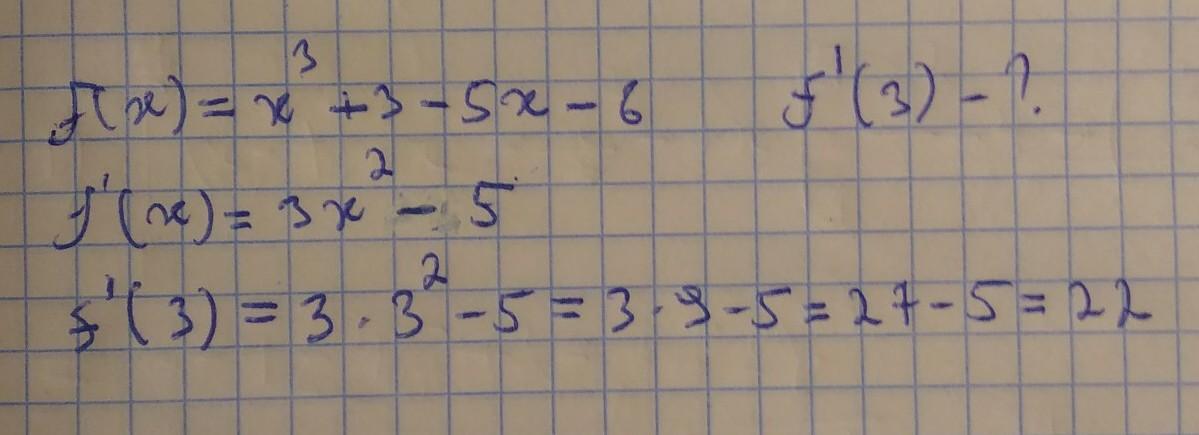 f(x) = x³ + 3 - 5x - 6    f'(3) - ?
f'(x) = 3x² - 5
f'(3) = 3 · 3² - 5 = 3 · 9 - 5 = 27 - 5 = 22